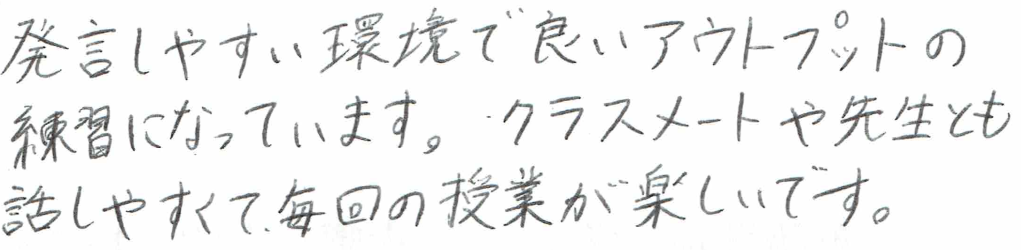 発言しやすい環境で良いアウトプットの
練習になっています。クラスメートや先生とも
話しやすくて、毎回の授業が楽しいです。